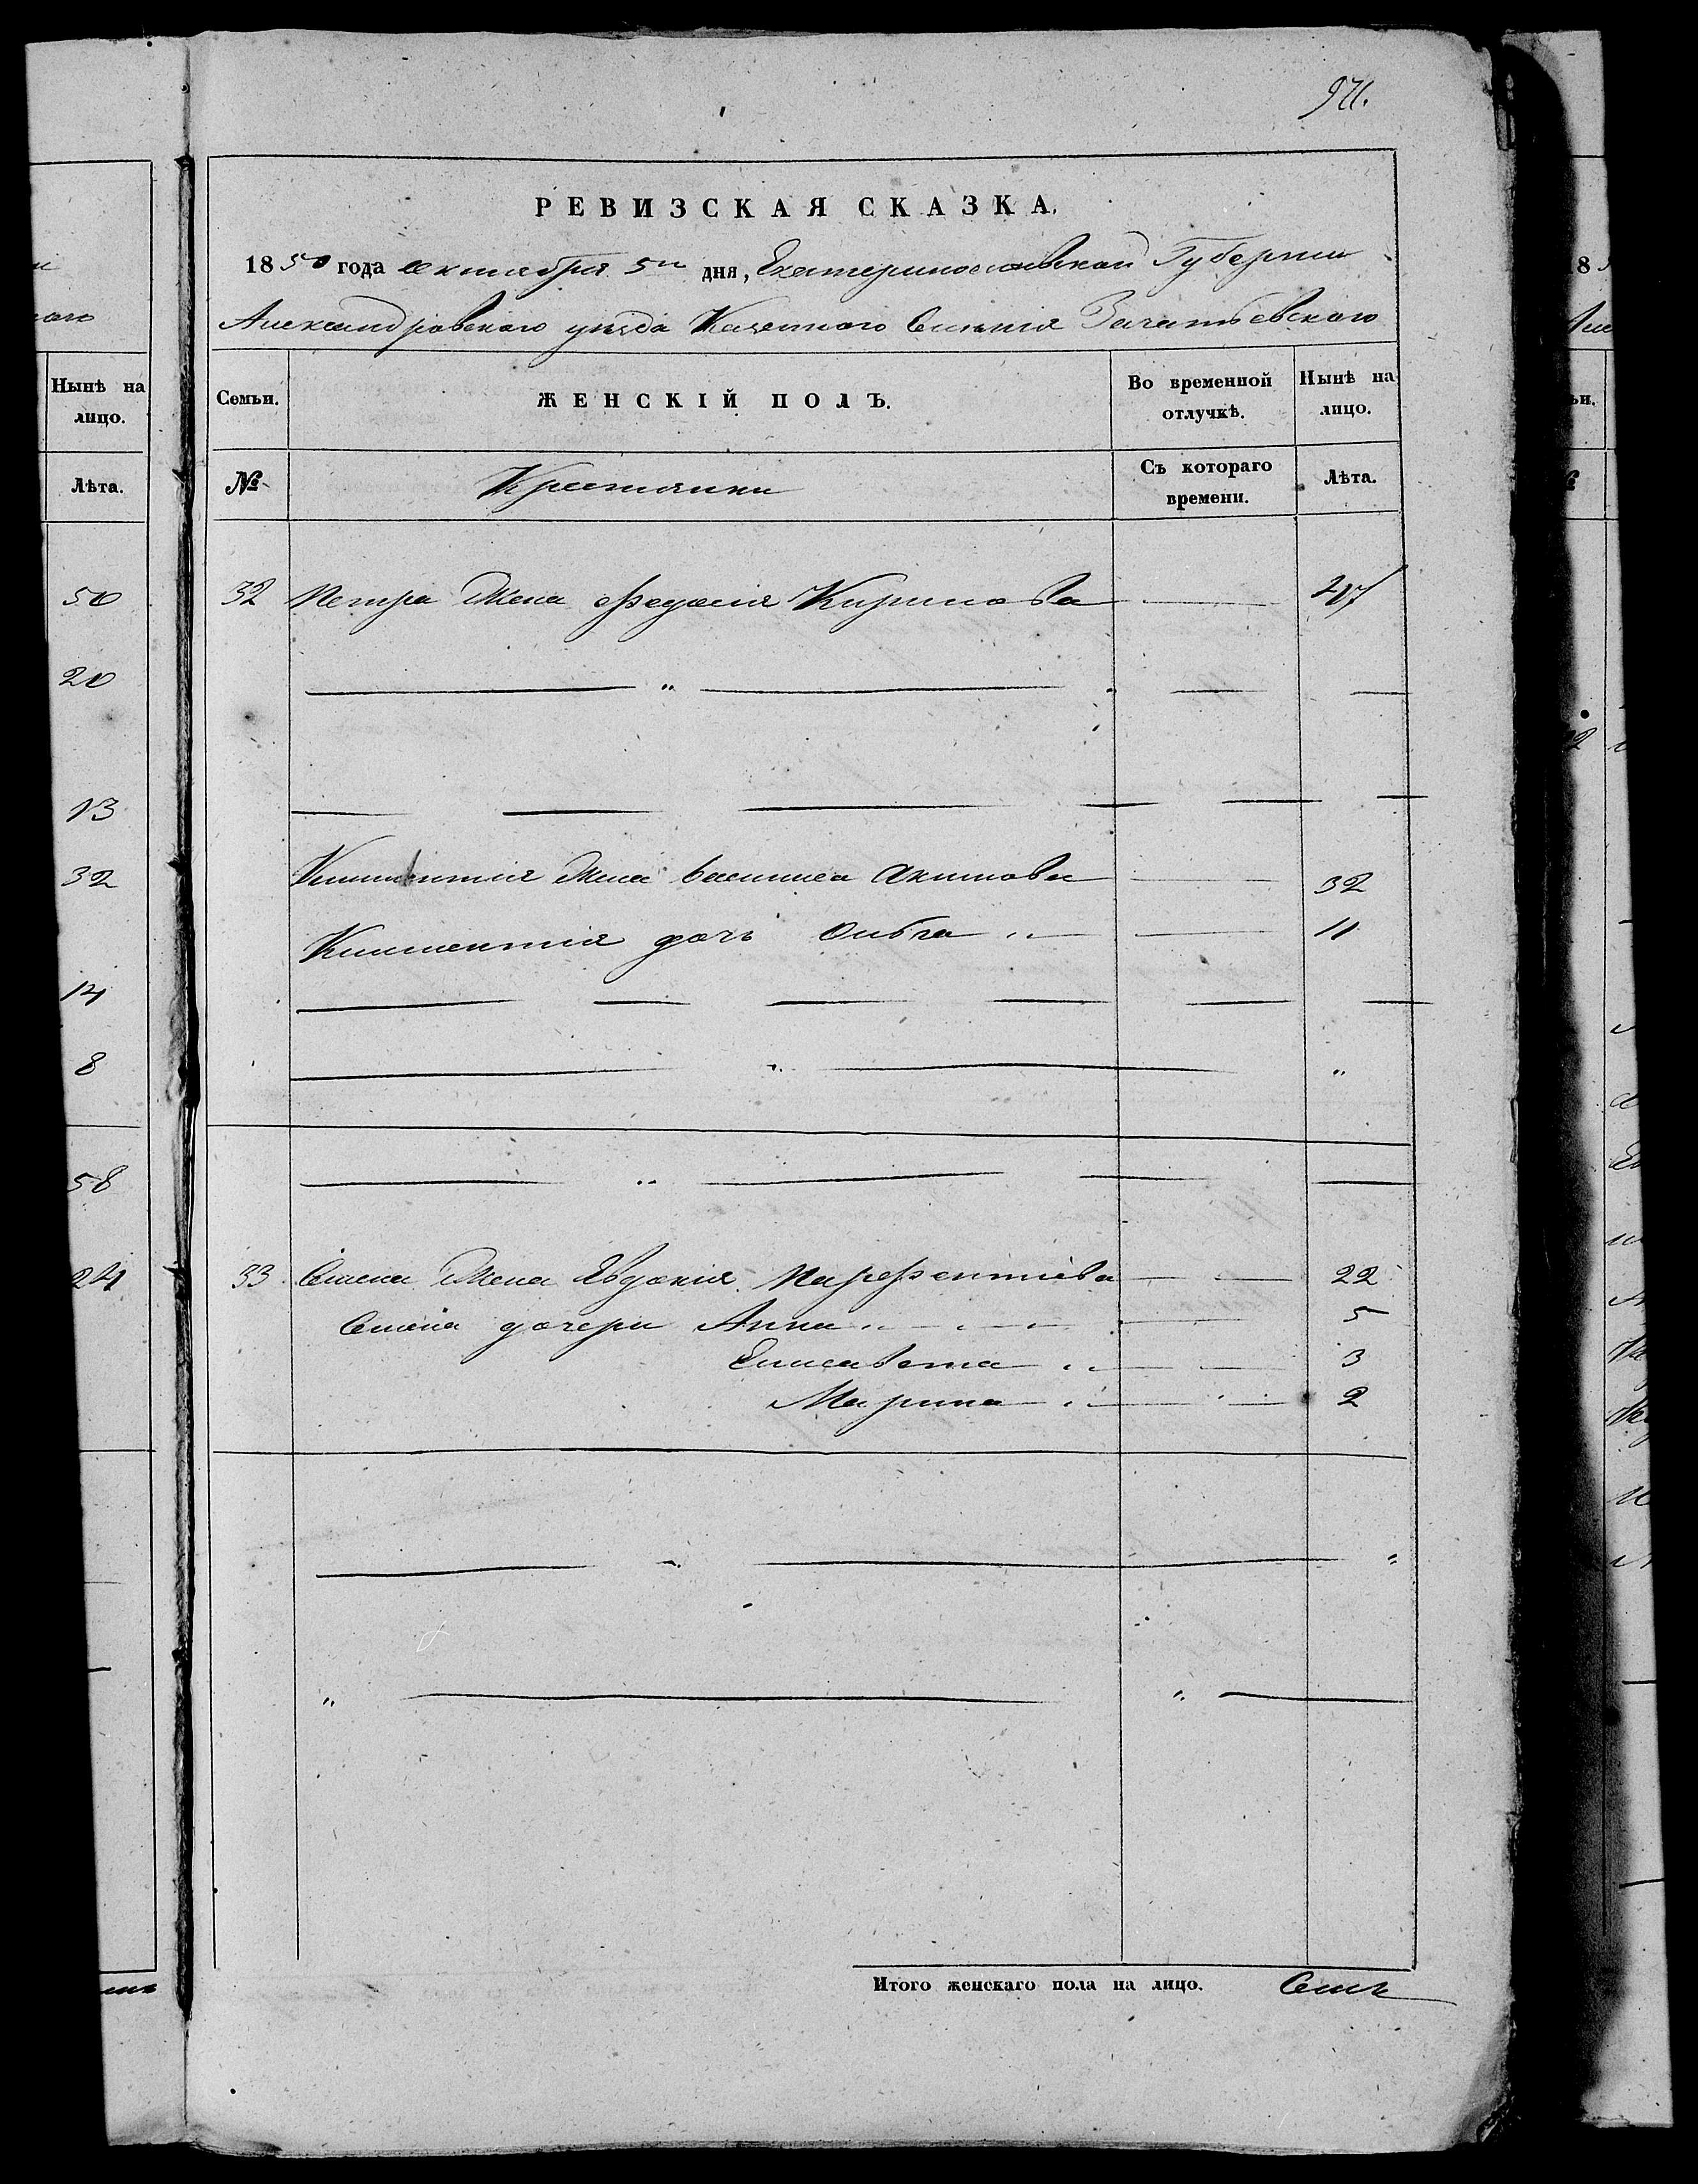 971.
РЕВИЗСКАЯ СКАЗКА.
1850 года октября 5го дня, Екатеринославской Губернии
Александровского уѣзда Казенного Селенія Зачатьевского
Семьи. ЖЕНСКІЙ ПОЛЪ. Во временной отлучкѣ. Нынѣ на лицо.
№ Крестьянки Съ котораго времени. Лѣта.
32 Петра жена Федосія Кирилова 47
жена Василиса Акимова 32
дочь Ольга 11
33 Семена жена Явдокія Парфентіева 22
Семена дочери Анна 5
Елисавета 3
Марина 2
Итого женскаго пола на лицо. Семь
Нынѣ на лицо.
Лѣта.
50
20
13
32
14
8
58
24